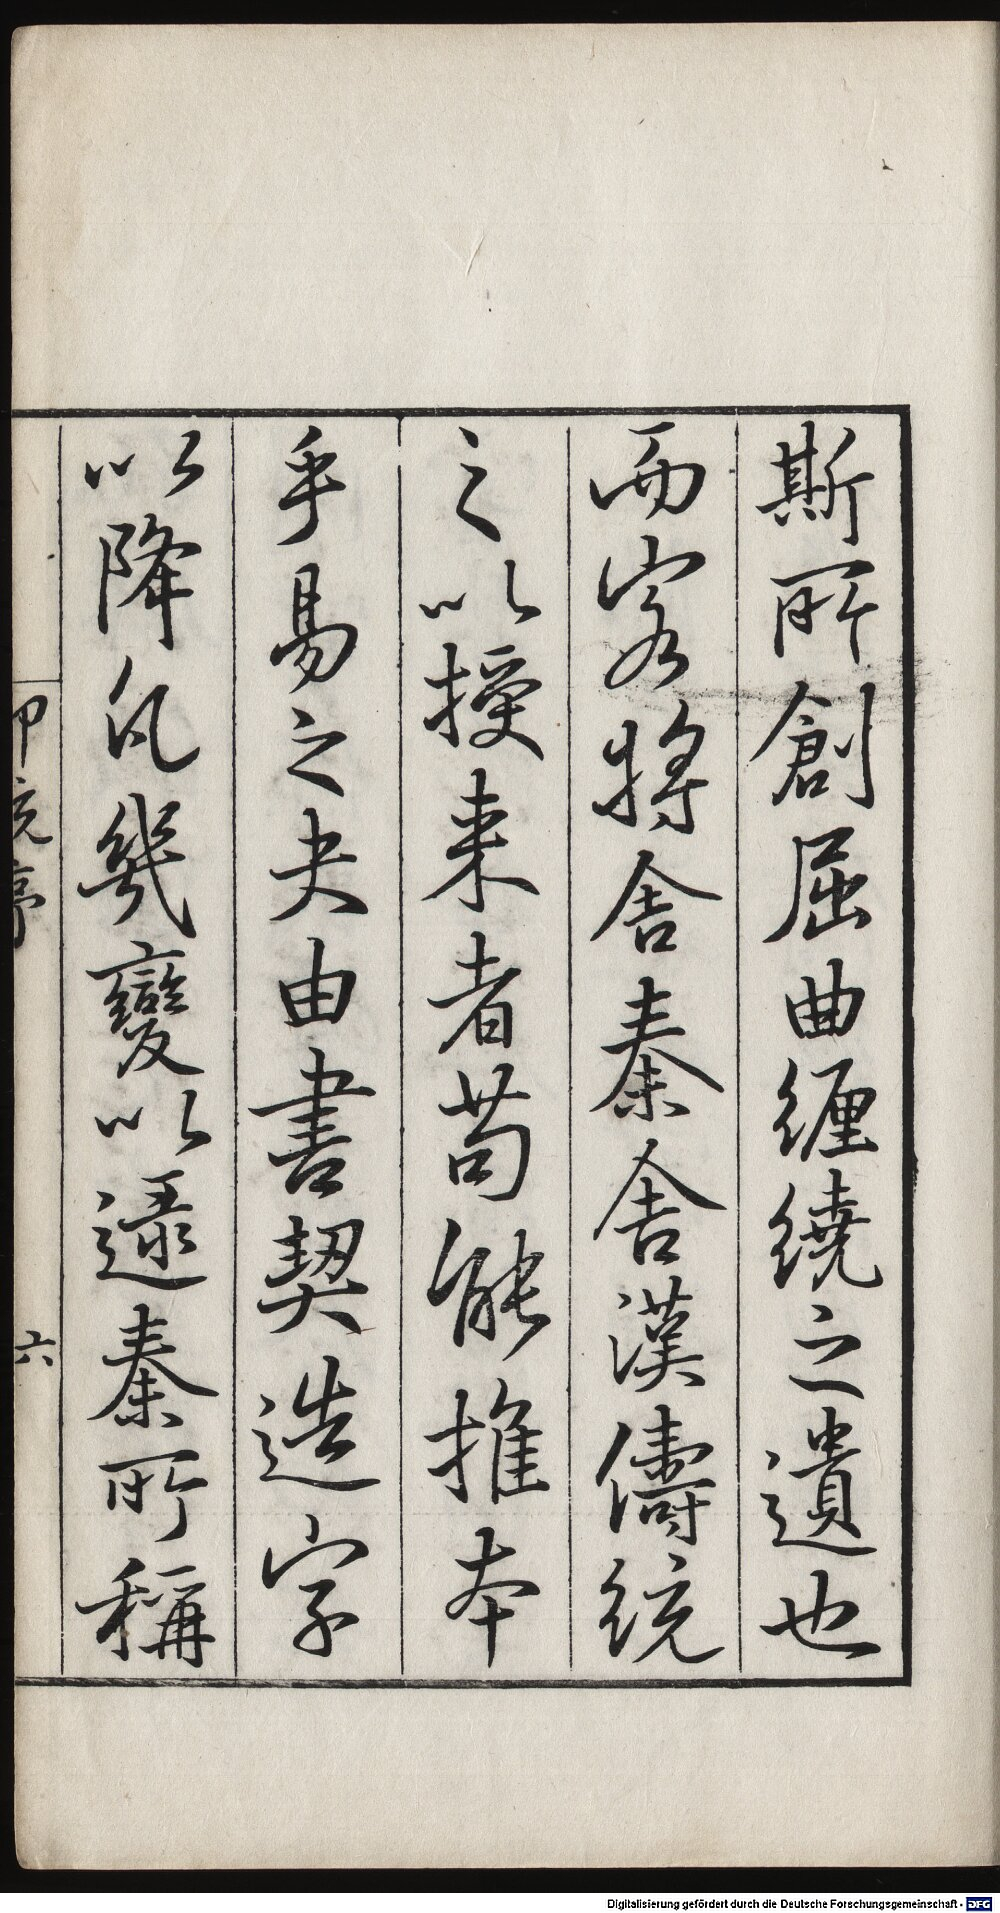 斯所創屈曲纏繞之遺也
而客將舍秦舍漢儔統
之以授来者苟能推本
乎易之夬由書契造字
以降凡幾變以逯秦所稱
六
Digitalisierung gefördert durch die Deutsche Forschungsgemeinschaft - DFG